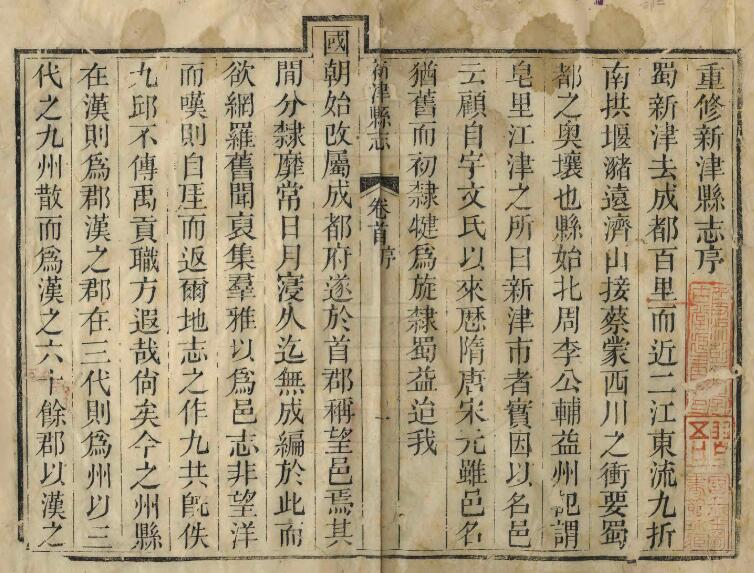 重修新津縣志序
蜀新津去成都百里而近二江東流九折
南拱堰瀦遠濟山接蔡蒙西川之衝要蜀
都之奧壤也縣始北周李公輔益州記謂
皂里江津之所曰新津市者實因以名邑
云顧自宇文氏以來歷隋唐宋元雖邑名
猶舊而初隸犍爲旋隸蜀益迨我
新津縣志
卷首
序
一
國朝始改屬成都府遂於首郡稱望邑焉其
間分隸靡常日月寖久迄無成編於此而
欲網羅舊聞裒集羣雅以爲邑志非望洋
而嘆則自厓而返爾地志之作九共旣佚
九邱不傳禹貢職方遐哉尙矣今之州縣
在漢則爲郡漢之郡在三代則爲州以三
代之九州散而爲漢之六十餘郡以漢之